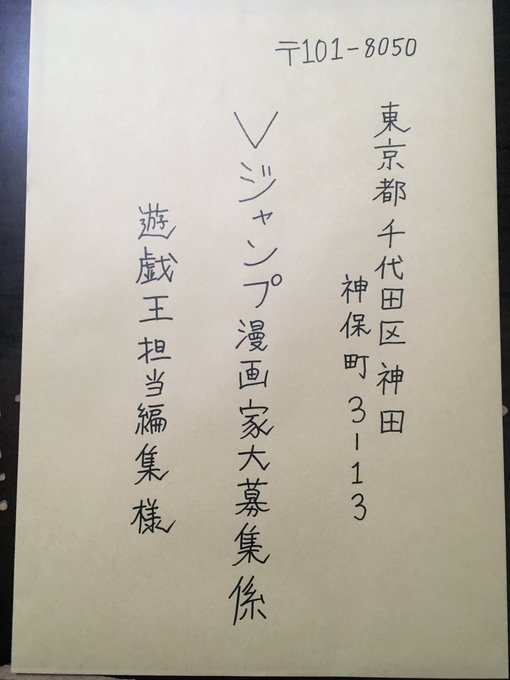 〒101-8050
東京都千代田区神田
神保町3-13
Vジャンプ漫画家大募集係
遊戯王担当編集様